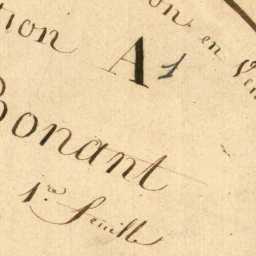 on en
tion A1
Bonant
1.re Feuille